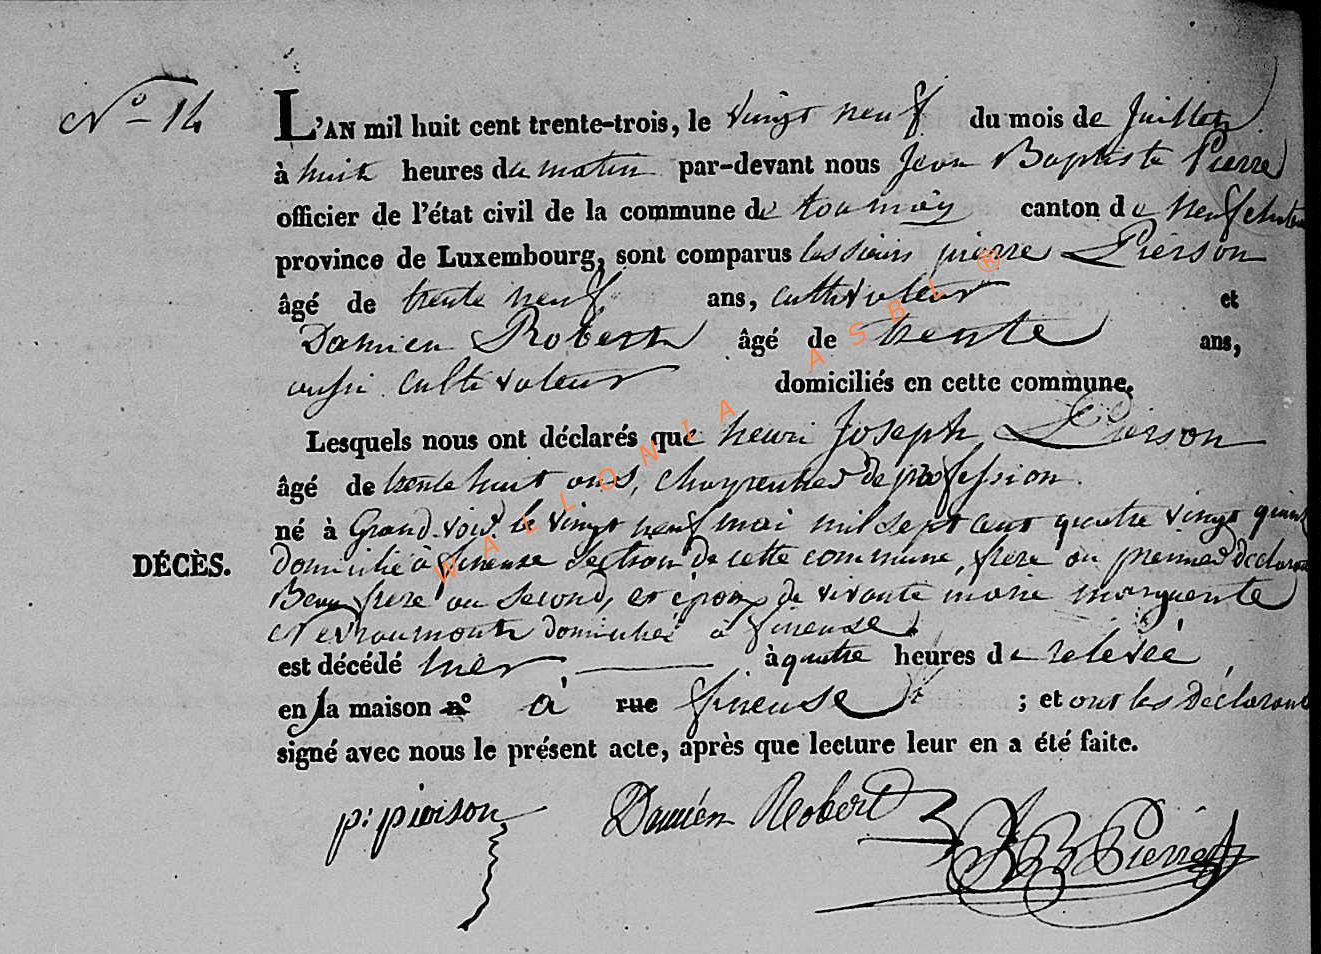 N° 14
L'AN mil huit cent trente-trois, le vingt neuf du mois de Juillet
à huit heures du matin par-devant nous Jean Baptiste Pierre
officier de l'état civil de la commune de tournay canton de neufchateau
province de Luxembourg, sont comparus les sieurs pierre Pierson
âgé de trente neuf ans, cultivateur et
Damien Robert âgé de trente ans,
aussi cultivateur domiciliés en cette commune.
Lesquels nous ont déclarés que henri Joseph Pierson
âgé de trente huit ans, charpentier de profession
né à Grandvoir le vingt neuf mai mil sept cent quatre vingt quinze
DÉCÈS. domicilié à fineuse section de cette commune, frere au premier déclarant
Beau frere au second, et époux de vivante marie marguerite
Nevraumont domiciliée à fineuse
est décédé hier à quatre heures de relevée
en sa maison n° à rue fineuse ; et ont les déclarants
signé avec nous le présent acte, après que lecture leur en a été faite.
p: pierson Damien Robert JB Pierre
WALLONIA ASBL ®